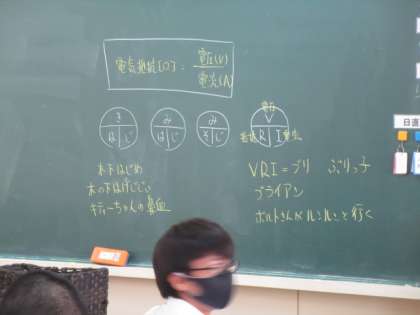 電気抵抗[Ω] = 電圧(V) / 電流(A)
き は じ
み は じ
み そ じ
電圧 V R I 電流
木下はじめ
木の下はげじじい
キティーちゃんの
VRI=ブリ ぶりっ子
ブライアン
ボルトさんがルンルンと行く
日直